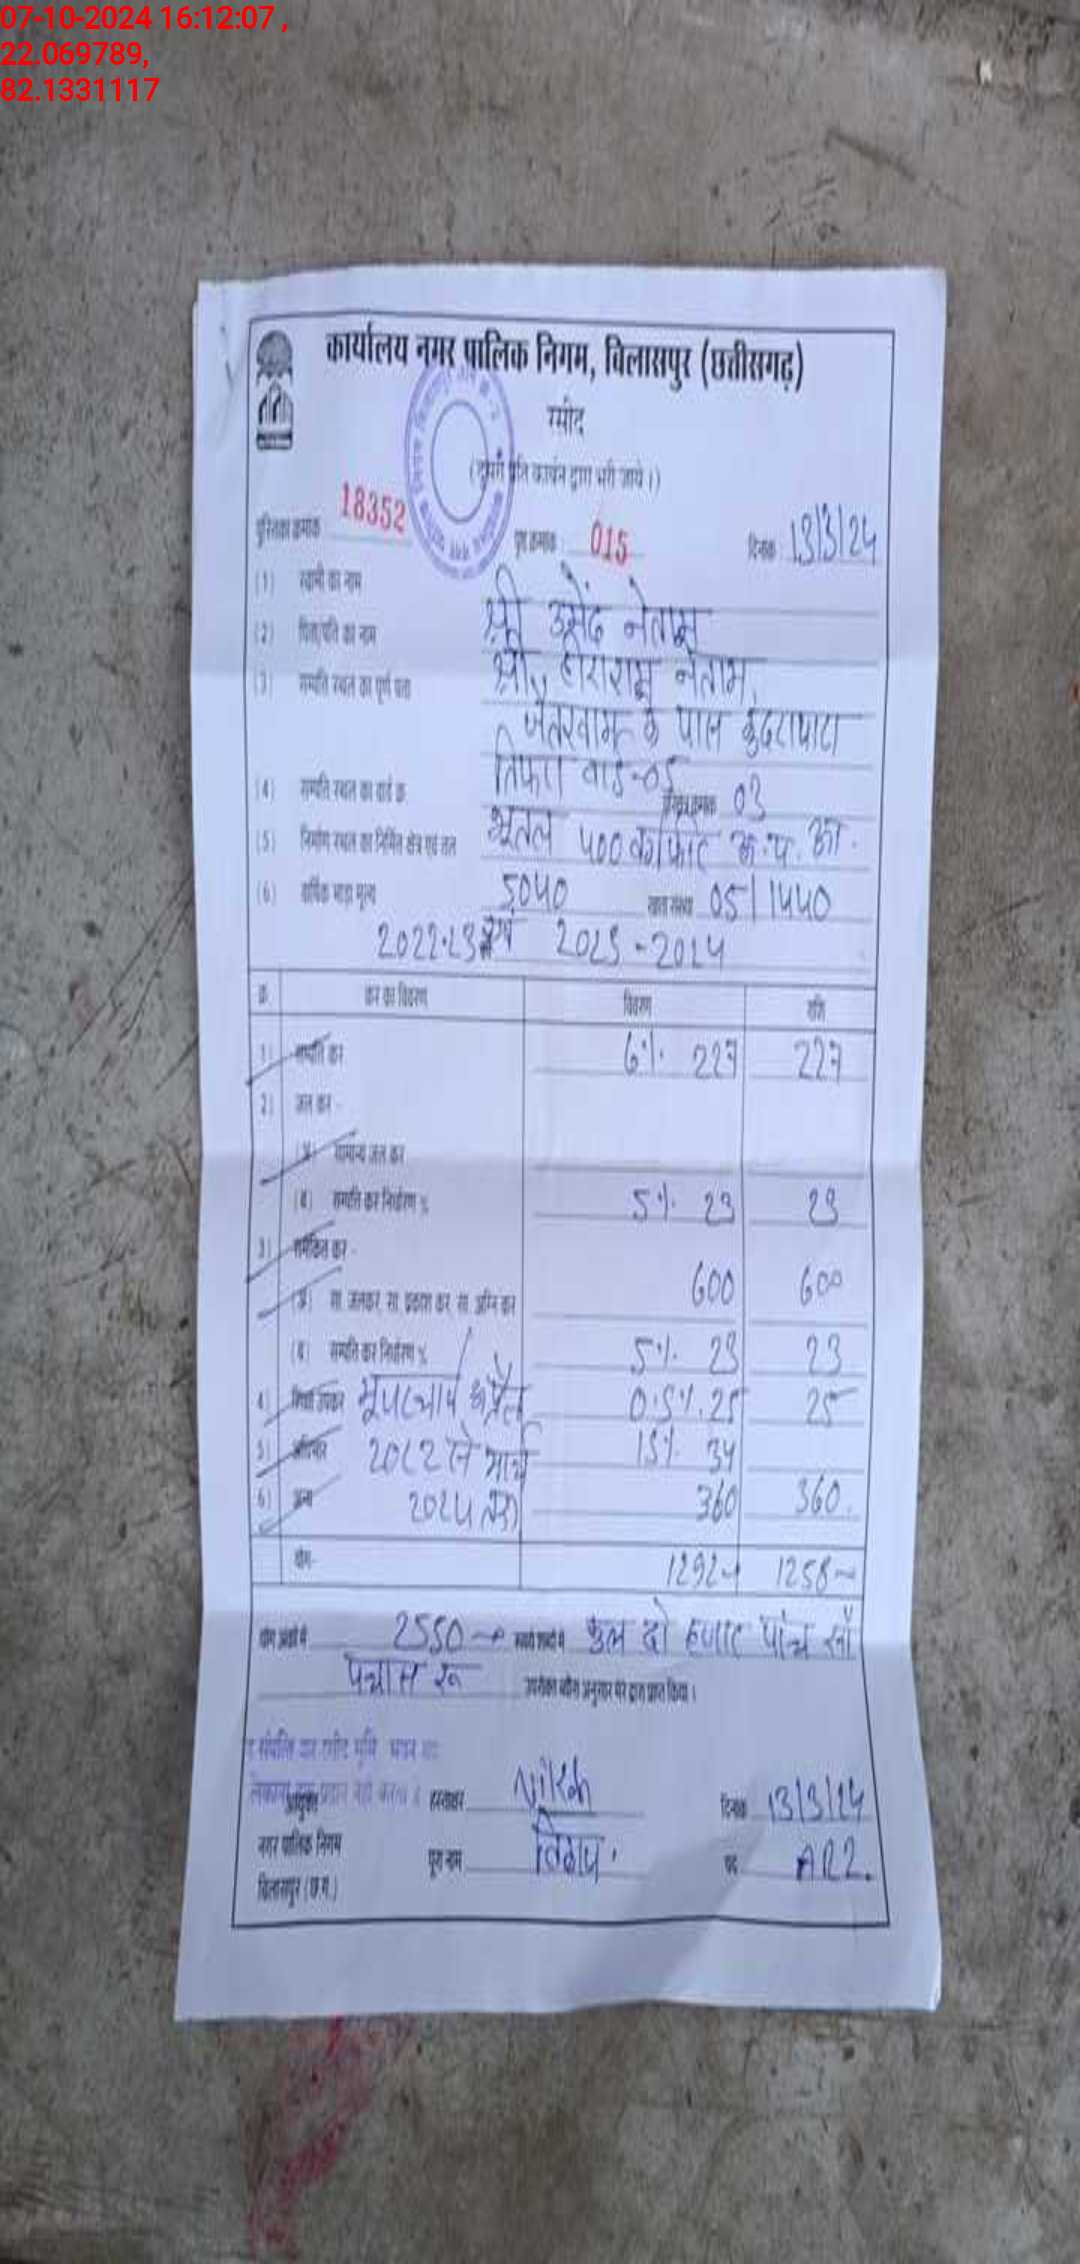 07-10-2024 16:12:07 ,
22.069789,
82.1331117
कार्यालय नगर पालिक निगम, बिलासपुर (छत्तीसगढ़)
रसीद
(दूसरी प्रति कार्बन द्वारा भरी जाये।)
पुस्तिका क्रमांक 18352 पृष्ठ क्रमांक : 015 दिनांक 13/3/24
(1) स्वामी का नाम
श्री नेताम
(2) पिता/पति का नाम
श्री नेताम,
(3) सम्पत्ति स्थल का पूर्ण पता
जैतखाम के पास
तिफरा वार्ड-05
(4) सम्पत्ति स्थल का वार्ड क्र. 03
(5) निर्माण स्थल का निर्मित क्षेत्र एवं तल भूतल 400 वर्गफीट
(6) वार्षिक भाड़ा मूल्य 5040 खाता संख्या 05/1440
2022-23 एवं 2023-2024
क्र. कर का विवरण विवरण राशि
1) सम्पत्ति कर 6% 227 227
2) जल कर -
(अ) सामान्य जल कर
(ब) सम्पत्ति कर निर्धारण % 5% 23 23
3) समेकित कर -
600 600
(अ) सा. जलकर, सा. प्रकाश कर, सा. अग्नि कर
(ब) सम्पत्ति कर निर्धारण % 5% 23 23
4) शिक्षा उपकर अप्रैल 0.5% 25 25
5) अधिभार 2022 से मार्च 15% 34
6) अन्य 2024 तक 360 360
योग- 1292 1258
योग अंकों में 2550 रुपये शब्दों में कुल दो हजार पांच सौ
पचास रू उपरोक्त योग अनुसार मेरे द्वारा प्राप्त किया।
आयुक्त हस्ताक्षर दिनांक 13/3/24
नगर पालिक निगम पूरा नाम पद ARI.
बिलासपुर (छ.ग.)